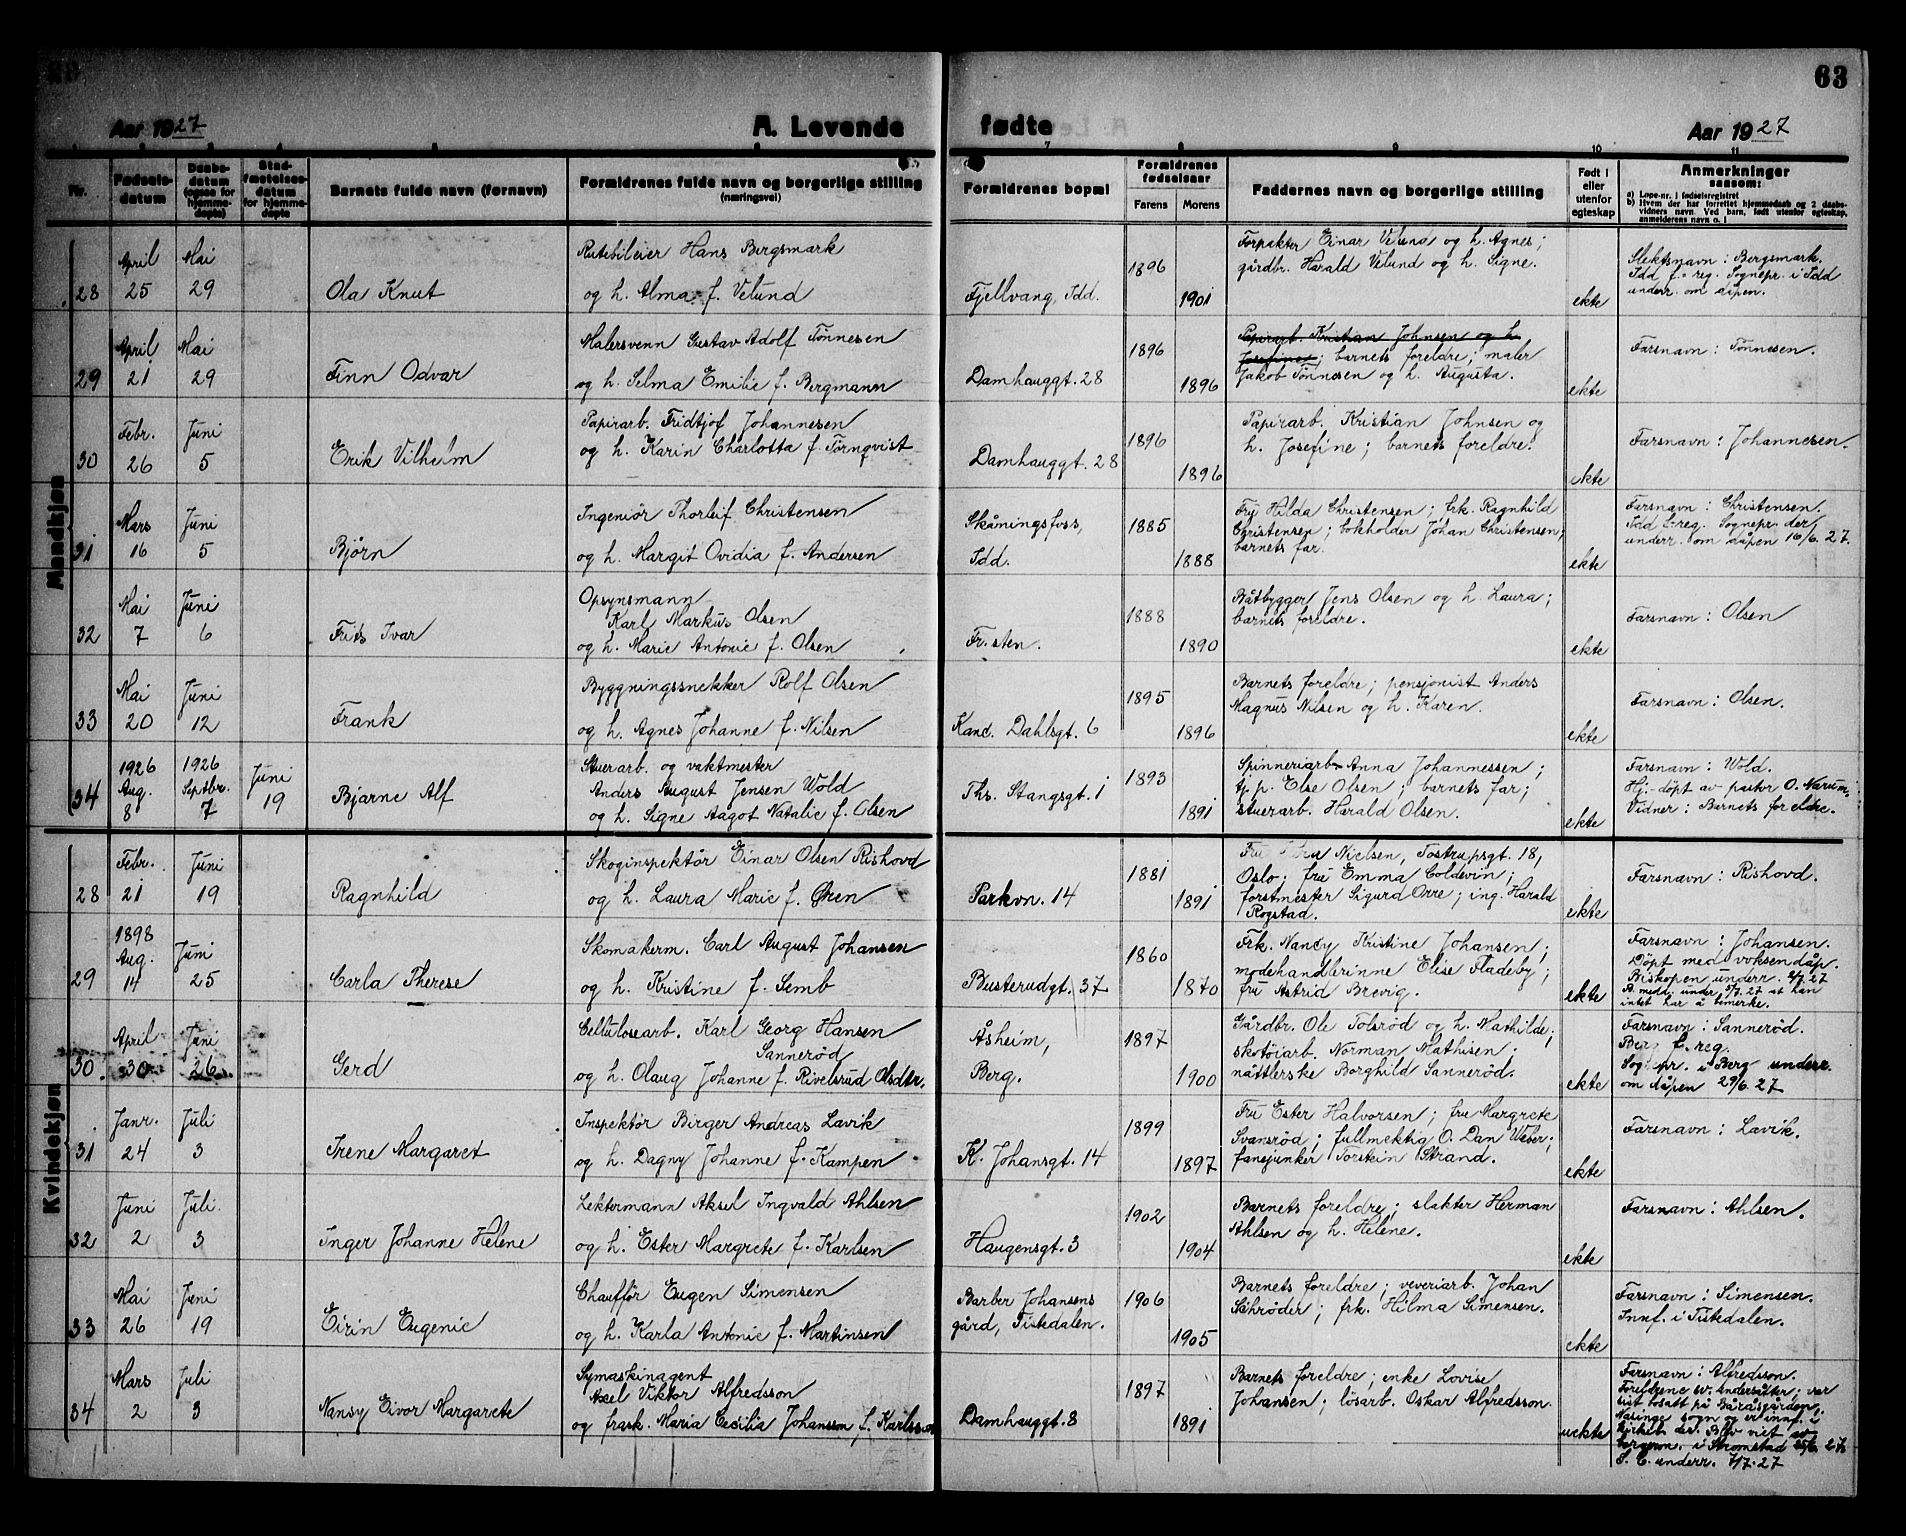 63
Aar 1927
A. Levende
fødte
Aar 1927
7
8
9
10
11
Nr.
Fødsels-
datum
Daabs-
datum
(ogsaa for
hjemme-
døpte)
Stad-
fæstelses-
datum
for hjemme-
døpte
Barnets fulde navn (fornavn)
Formældrenes fulde navn og borgerlige stilling
(næringsvei)
Forældrenes bopæl
Forældrenes
fødselsaar
Farens
Morens
Faddernes navn og borgerlige stilling
Født i
eller
utenfor
egteskap
Anmerkninger
saasom:
a) Løpe-nr. i fødselsregistret
b) Hvem der har forrettet hjemmedaab og 2 daabs-
vidners navn. Ved barn, født utenfor egteskap,
anmelderens navn o. l
Mandkjøn
28
April
25
Mai
29
Ola Knut
Rutebileier Hans Bergsmark
og h. Alma f. Velund
Fjellvang, Idd.
1896
1901
Forpakter Einar Velund og h. Agnes;
gårdbr. Harald Velund og h. Signe.
ekte
Slektsnavn: Bergsmark.
Idd f. reg. Sognepr. i Idd
underr. om dåpen.
29
April
21
Mai
29
Finn Odvar
Malersvenn Gustav Adolf Tønnesen
og h. Selma Emilie f. Bergmann
Damhauggt. 28
1896
1896
Papirarb. Kristian Johnsen og h.
Josefine; barnets foreldre; maler
Jakob Tønnesen og h. Augusta.
ekte
Farsnavn: Tønnesen.
30
Febr.
26
Juni
5
Erik Vilhelm
Papirarb. Fridtjof Johannesen
og h. Karin Charlotta f. Törnqvist
Damhauggt. 28
1896
1896
Papirarb. Kristian Johnsen og
h. Josefine; barnets foreldre.
ekte
Farsnavn: Johannesen.
31
Mars
16
Juni
5
Bjørn
Ingeniør Thorleif Christensen
og h. Margit Ovidia f. Andersen
Skåningsfoss,
Idd.
1885
1888
Fru Hilda Christensen; frk. Ragnhild
Christensen; bokholder Johan Christensen;
barnets far.
ekte
Farsnavn: Christensen.
Idd f. reg. Sognepr. der
underr. om dåpen 16/6. 27.
32
Mai
7
Juni
6
Frits Ivar
Opsynsmann
Karl Markus Olsen
og h. Marie Antonie f. Olsen
Fr.sten.
1888
1890
Båtbygger Jens Olsen og h. Laura;
barnets foreldre.
ekte
Farsnavn: Olsen
33
Mai
20
Juni
12
Frank
Byggningssnekker Rolf Olsen
og h. Agnes Johanne f. Nilsen
Kanc. Dahlsgt. 6
1895
1896
Barnets foreldre; pensjonist Anders
Magnus Nilsen og h. Karen.
ekte
Farsnavn: Olsen.
34
1926
Aug.
8
1926
Septbr.
7
Juni
19
Bjarne Alf
Stuerarb. og vaktmester
Anders August Jensen Wold
og h. Signe Aagot Natalie f. Olsen
Ths. Stangsgt. 1
1893
1891
Spinneriarb. Anna Johannessen;
tj. p. Else Olsen; barnets far;
stuerarb. Harald Olsen.
ekte
Farsnavn: Wold.
Hj.-døpt av pastor O. Narum.
Vidner: Barnets foreldre.
Kvindekjøn
28
Febr.
21
Juni
19
Ragnhild
Skoginspektør Einar Olsen Rishovd
og h. Laura Marie f. Øren
Parkvn. 14
1881
1891
Fru Nielsen, Tostrupsgt. 18,
Oslo; fru Emma Coldevin;
forstmester Sigurd Orre; ing. Harald
Rogstad.
ekte
Farsnavn: Rishovd.
29
1898
Aug.
14
Juni
25
Carla Therese
Skomakerm. Carl August Johansen
og h. Kristine f. Semb
Busterudgt. 37
1860
1870
Frk. Nancy Kristine Johansen;
modehandlerinne Elise Fladeby;
fru Astrid Brevig.
ekte
Farsnavn: Johansen.
Døpt med voksendåp.
Biskopen underr. 2/7. 27
B. medd. under 5/7. 27 at han
intet har å bemerke.
30
April
30
Juni
26
Gerd
Cellulosearb. Karl Georg Hansen
Sannerød
og h. Olaug Johanne f. Rivelsrud Olsdtr.
Åsheim,
Berg.
1897
1900
Gårdbr. Ole Tolsrød og h. Mathilde;
skotøiarb. Norman Mathisen;
nåttlerske Borghild Sannerød.
ekte
Farsnavn: Sannerød.
Berg f. reg.
Sognepr. i Berg underr.
om dåpen 29/6. 27
31
Janr.
24
Juli
3
Irene Margaret
Inspektør Birger Andreas Lavik
og h. Dagny Johanne f. Kampen
K. Johansgt. 14
1899
1897
Fru Ester Halvorsen; fru Margrete
Svansrød; fullmektig O. Dan Weber;
fanejunker Torstein Strand.
ekte
Farsnavn: Lavik.
32
Juni
2
Juli
3
Inger Johanne Helene
Lektermann Aksel Ingvald Ahlsen
og h. Ester Margrete f. Karlsen
Haugensgt. 3
1902
1904
Barnets foreldre; slakter Herman
Ahlsen og h. Helene.
ekte
Farsnavn: Ahlsen.
33
Mai
26
Juni
19
Eirin Eugenie
Chauffør Eugen Simensen
og h. Karla Antonie f. Martinsen
Barber Johansens
gård, Tistedalen.
1906
1905
Barnets foreldre; veveriarb. Johan
Schrøder; frk. Hilma Simensen.
ekte
Farsnavn: Simensen.
Innf. i Tistedalen.
34
Mars
2
Juli
3
Nansy Eivor Margarete
Symaskinagent
Axel Viktor Alfredsson
og frask. Maria Cecilia Johansson f. Karlsson
Damhauggt. 8
1897
1891
Barnets foreldre; enke Lovise
Johansen; løsarb. Oskar Alfredsson.
uekte
Farsnavn: Alfredsson.
Foreldrene sv. undersåtter; var
sist bosatt på Bäråsgården,
Näsinge sogn og er innf. i
kirkeb. der. Blev viet av
borgerm. i Strømstad 25/6 27.
S. C. underr. 7/7. 27